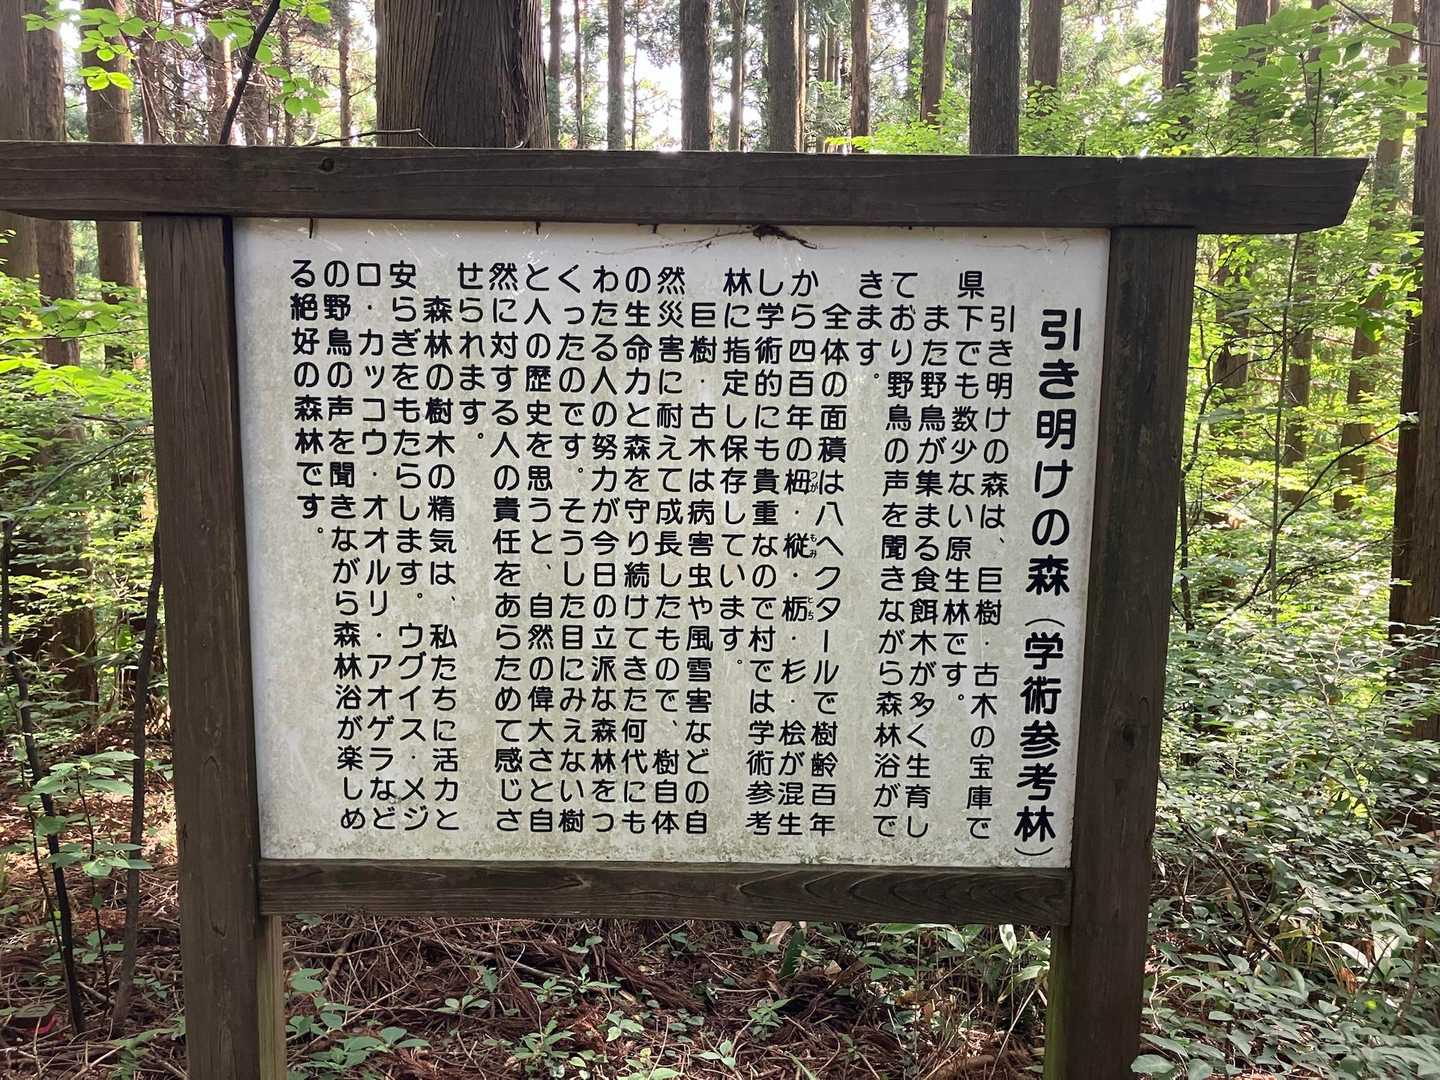 引き明けの森（学術参考林）
引き明けの森は、巨樹・古木の宝庫で
県下でも数少ない原生林です。
また野鳥が集まる食餌木が多く生育し
ており野鳥の声を聞きながら森林浴がで
きます。
全体の面積は八ヘクタールで樹齢百年
から四百年の栂・樅・栃・杉・桧が混生
つが もみ とち
し学術的にも貴重なので村では学術参考
林に指定し保存しています。
巨樹・古木は病害虫や風雪害などの自
然災害に耐えて成長したもので、樹自体
の生命力と森を守り続けてきた何代にも
わたる人の努力が今日の立派な森林をつ
くったのです。そうした目にみえない樹
と人の歴史を思うと、自然の偉大さと自
然に対する人の責任をあらためて感じさ
せられます。
森林の樹木の精気は、私たちに活力と
安らぎをもたらします。ウグイス・メジ
ロ・カッコウ・オオルリ・アオゲラなど
の野鳥の声を聞きながら森林浴が楽しめ
る絶好の森林です。